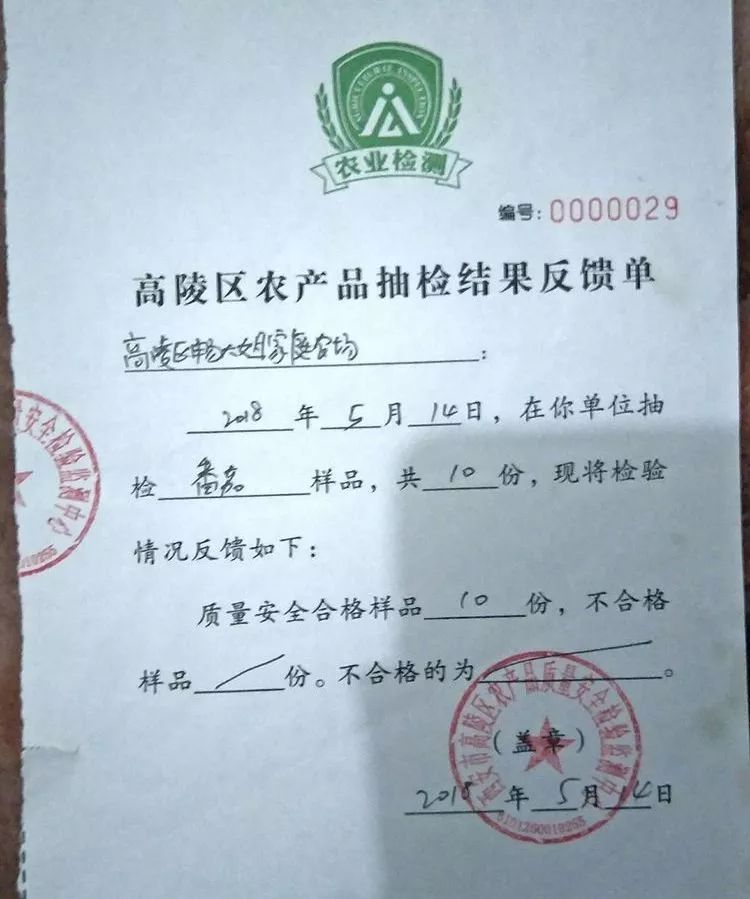 AGRICULTURAL INSPECTION
农业检测
编号：0000029
高陵区农产品抽检结果反馈单
高陵区畅大姐家庭农场：
2018年5月14日，在你单位抽
检番茄样品，共10份，现将检验
情况反馈如下：
质量安全合格样品10份，不合格
样品/份。不合格的为/。
（盖章）
2018年5月14日
西安市高陵区农产品质量安全检验监测中心
质量安全检验监测中心